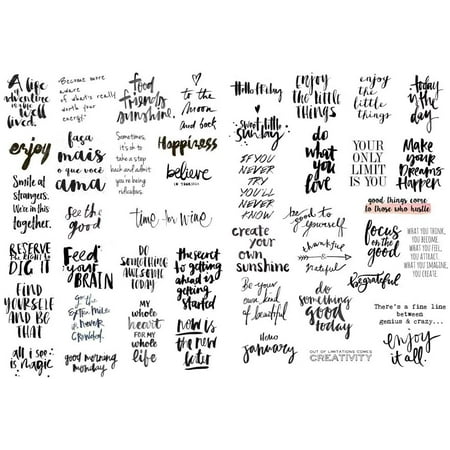 A life
in adventure
is a life
well
lived.
Become more
aware
of what's really
worth your
energy.
food
friends
sunshine.
to the
moon
and back
enjoy
faça
mais
o que você
ama
Sometimes,
it's ok to
take a step
back and admit
you're being
ridiculous.
Happiness
believe
IN YOURSELF
Smile at
strangers.
We're in this
together.
See the
good
time for wine
RESERVE
THE RIGHT TO
DIG IT
Feed
your
BRAIN
DO
SOMETHING
AWESOME
TODAY
the secret
to getting
ahead is
getting
started
FIND
YOURSELF
AND BE
THAT
Go the
Extra Mile
is never
crowded.
MY
whole
heart
FOR MY
whole
life
now is
the new
later
all i see
is magic
good morning
monday
Hello Friday
enjoy
THE LITTLE
THINGS
enjoy
the
little
things
today
is the
day
sweet little
sunday
do
what
you
love
YOUR
ONLY
LIMIT
IS YOU
Make
your
Dreams
Happen
IF YOU
NEVER
TRY
YOU'LL
NEVER
KNOW
good things come
to those who hustle
be good to
yourself
create
your
own
sunshine
thankful
&
grateful
focus
on the
good
WHAT YOU THINK,
YOU BECOME.
WHAT YOU FEEL,
YOU ATTRACT.
WHAT YOU IMAGINE,
YOU CREATE.
Be your
own kind
of beautiful
do
something
good
today
be grateful
There's a fine line
between
genius & crazy...
Hello
january
OUT OF LIMITATIONS COMES
CREATIVITY
enjoy
it all.